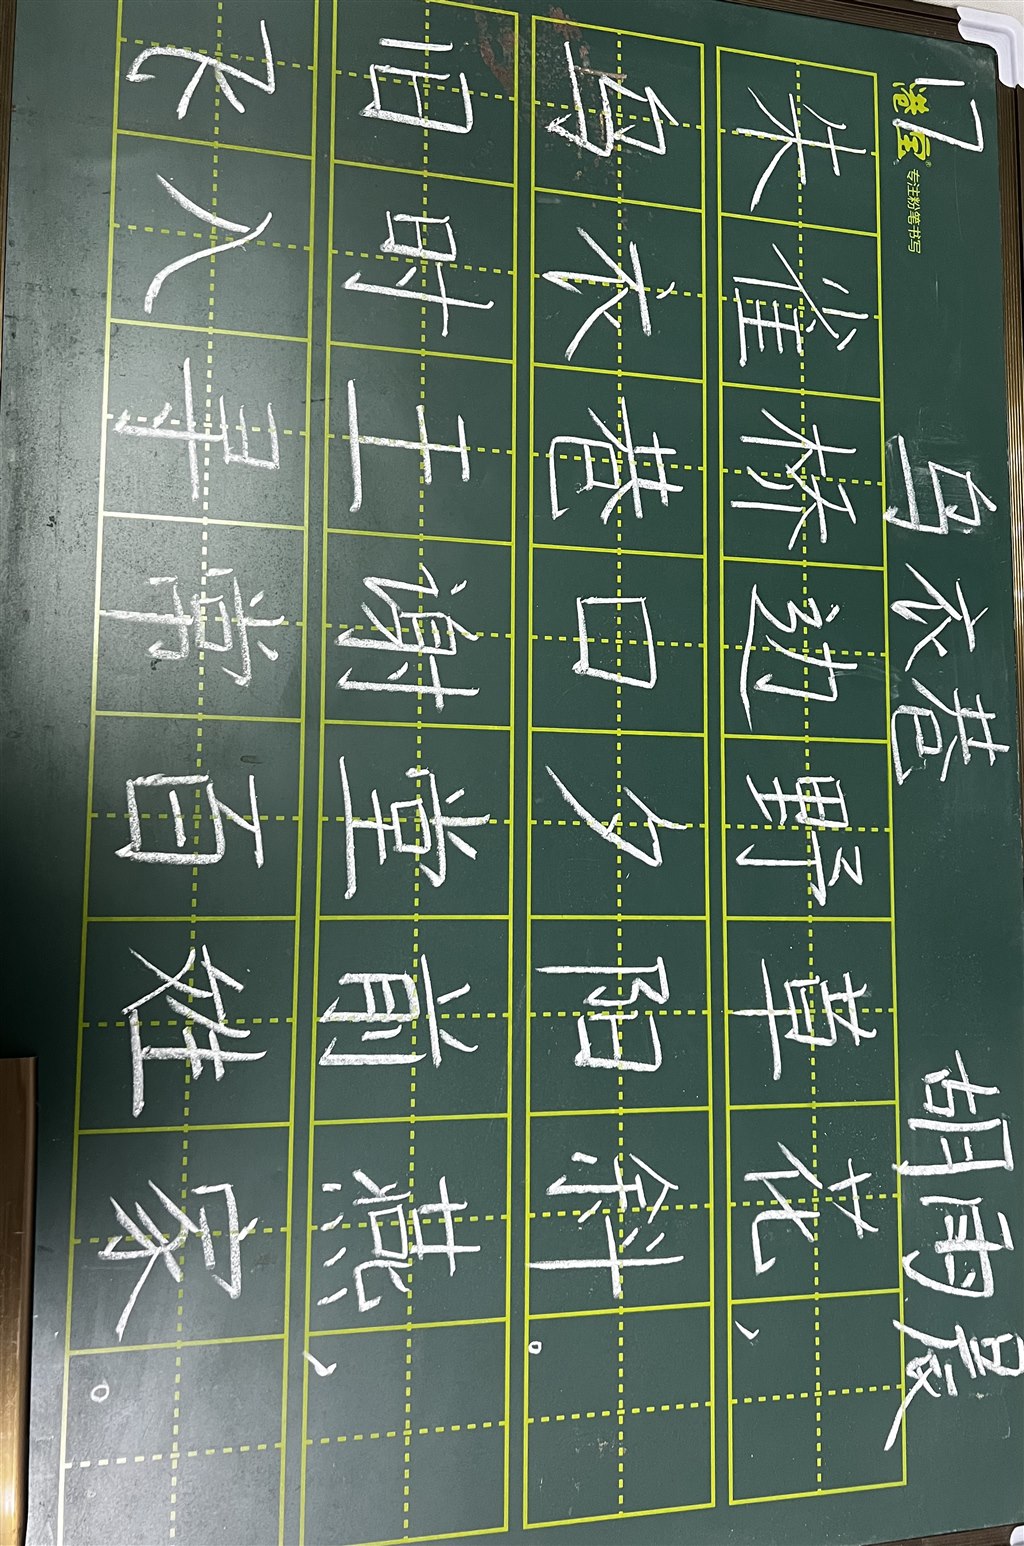 17 乌衣巷 胡雨晨
港宝® 专注粉笔书写
朱雀桥边野草花，
乌衣巷口夕阳斜。
旧时王谢堂前燕，
飞入寻常百姓家。